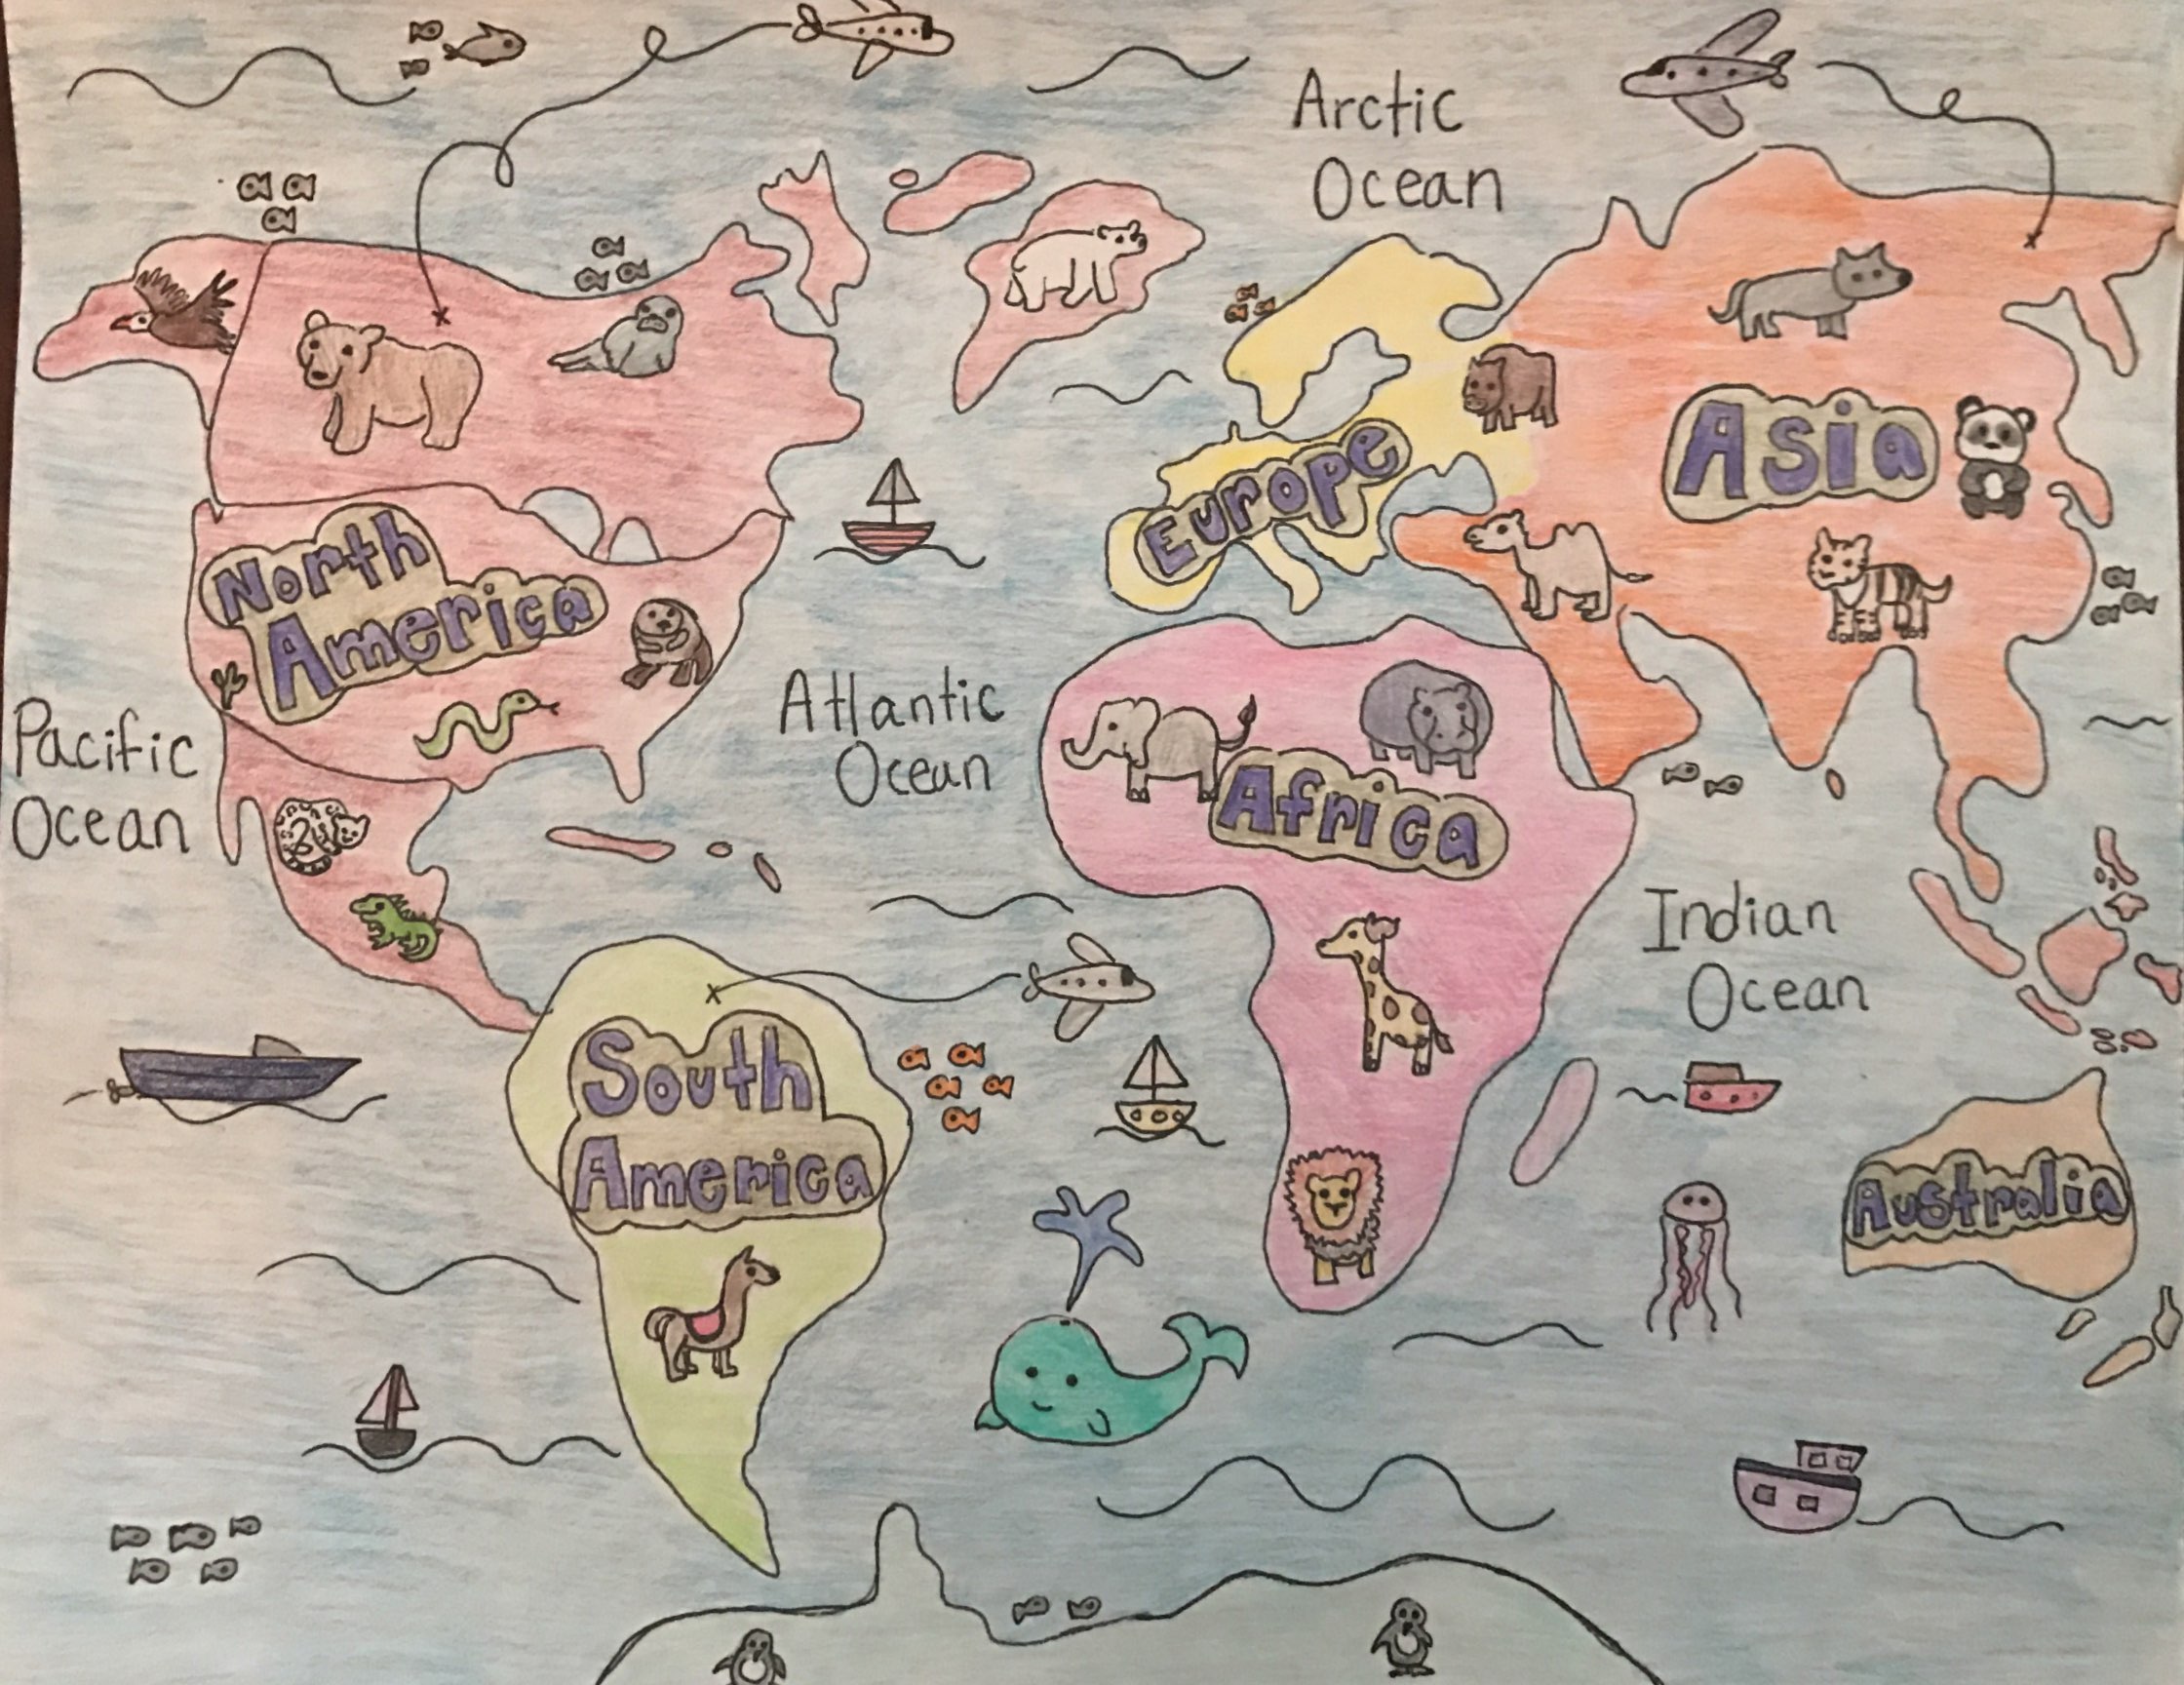 Arctic
Ocean
North
America
Europe
Asia
Pacific
Ocean
Atlantic
Ocean
Africa
Indian
Ocean
South
America
Australia